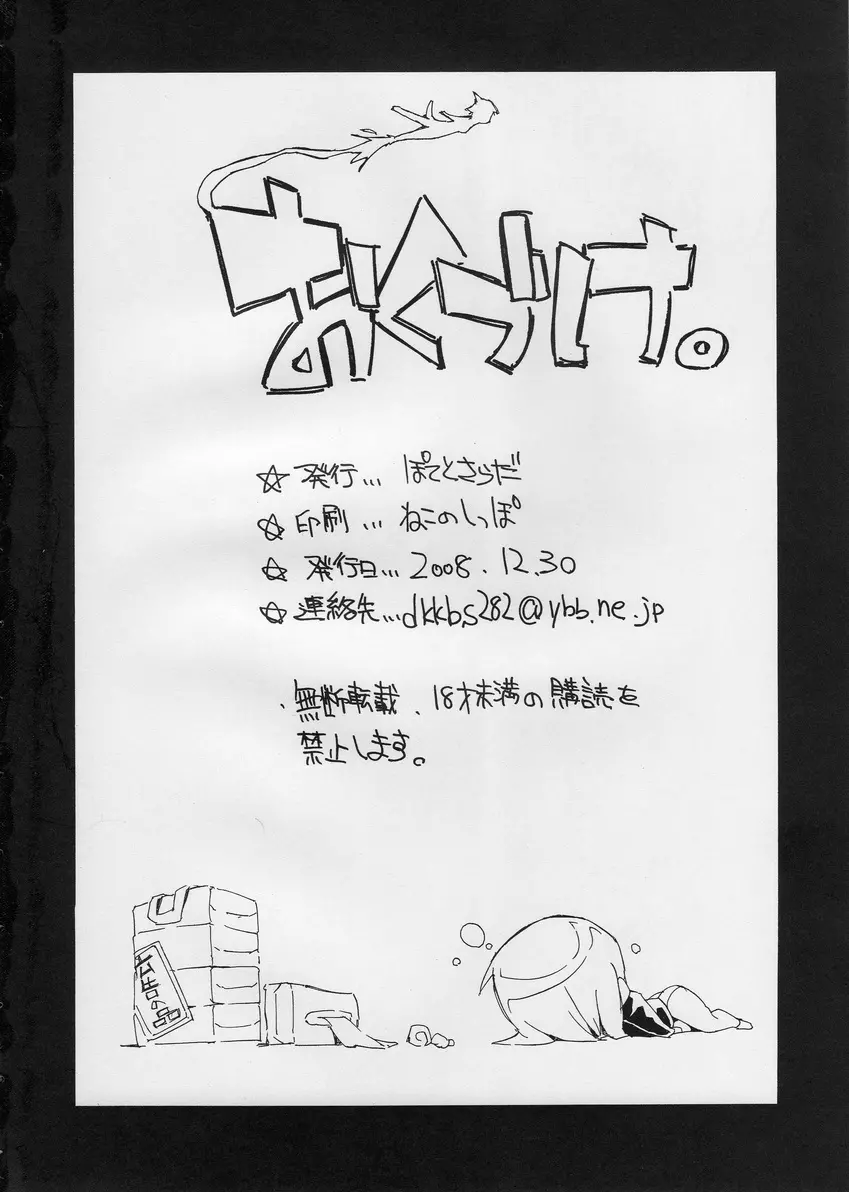 おくづけ。
☆ 発行... ぽてとさらだ
☆ 印刷... ねこのしっぽ
☆ 発行日... 2008.12.30
☆ 連絡先...dkkbs282@ybb.ne.jp
・無断転載、18才未満の購読を
禁止します。
広告の品